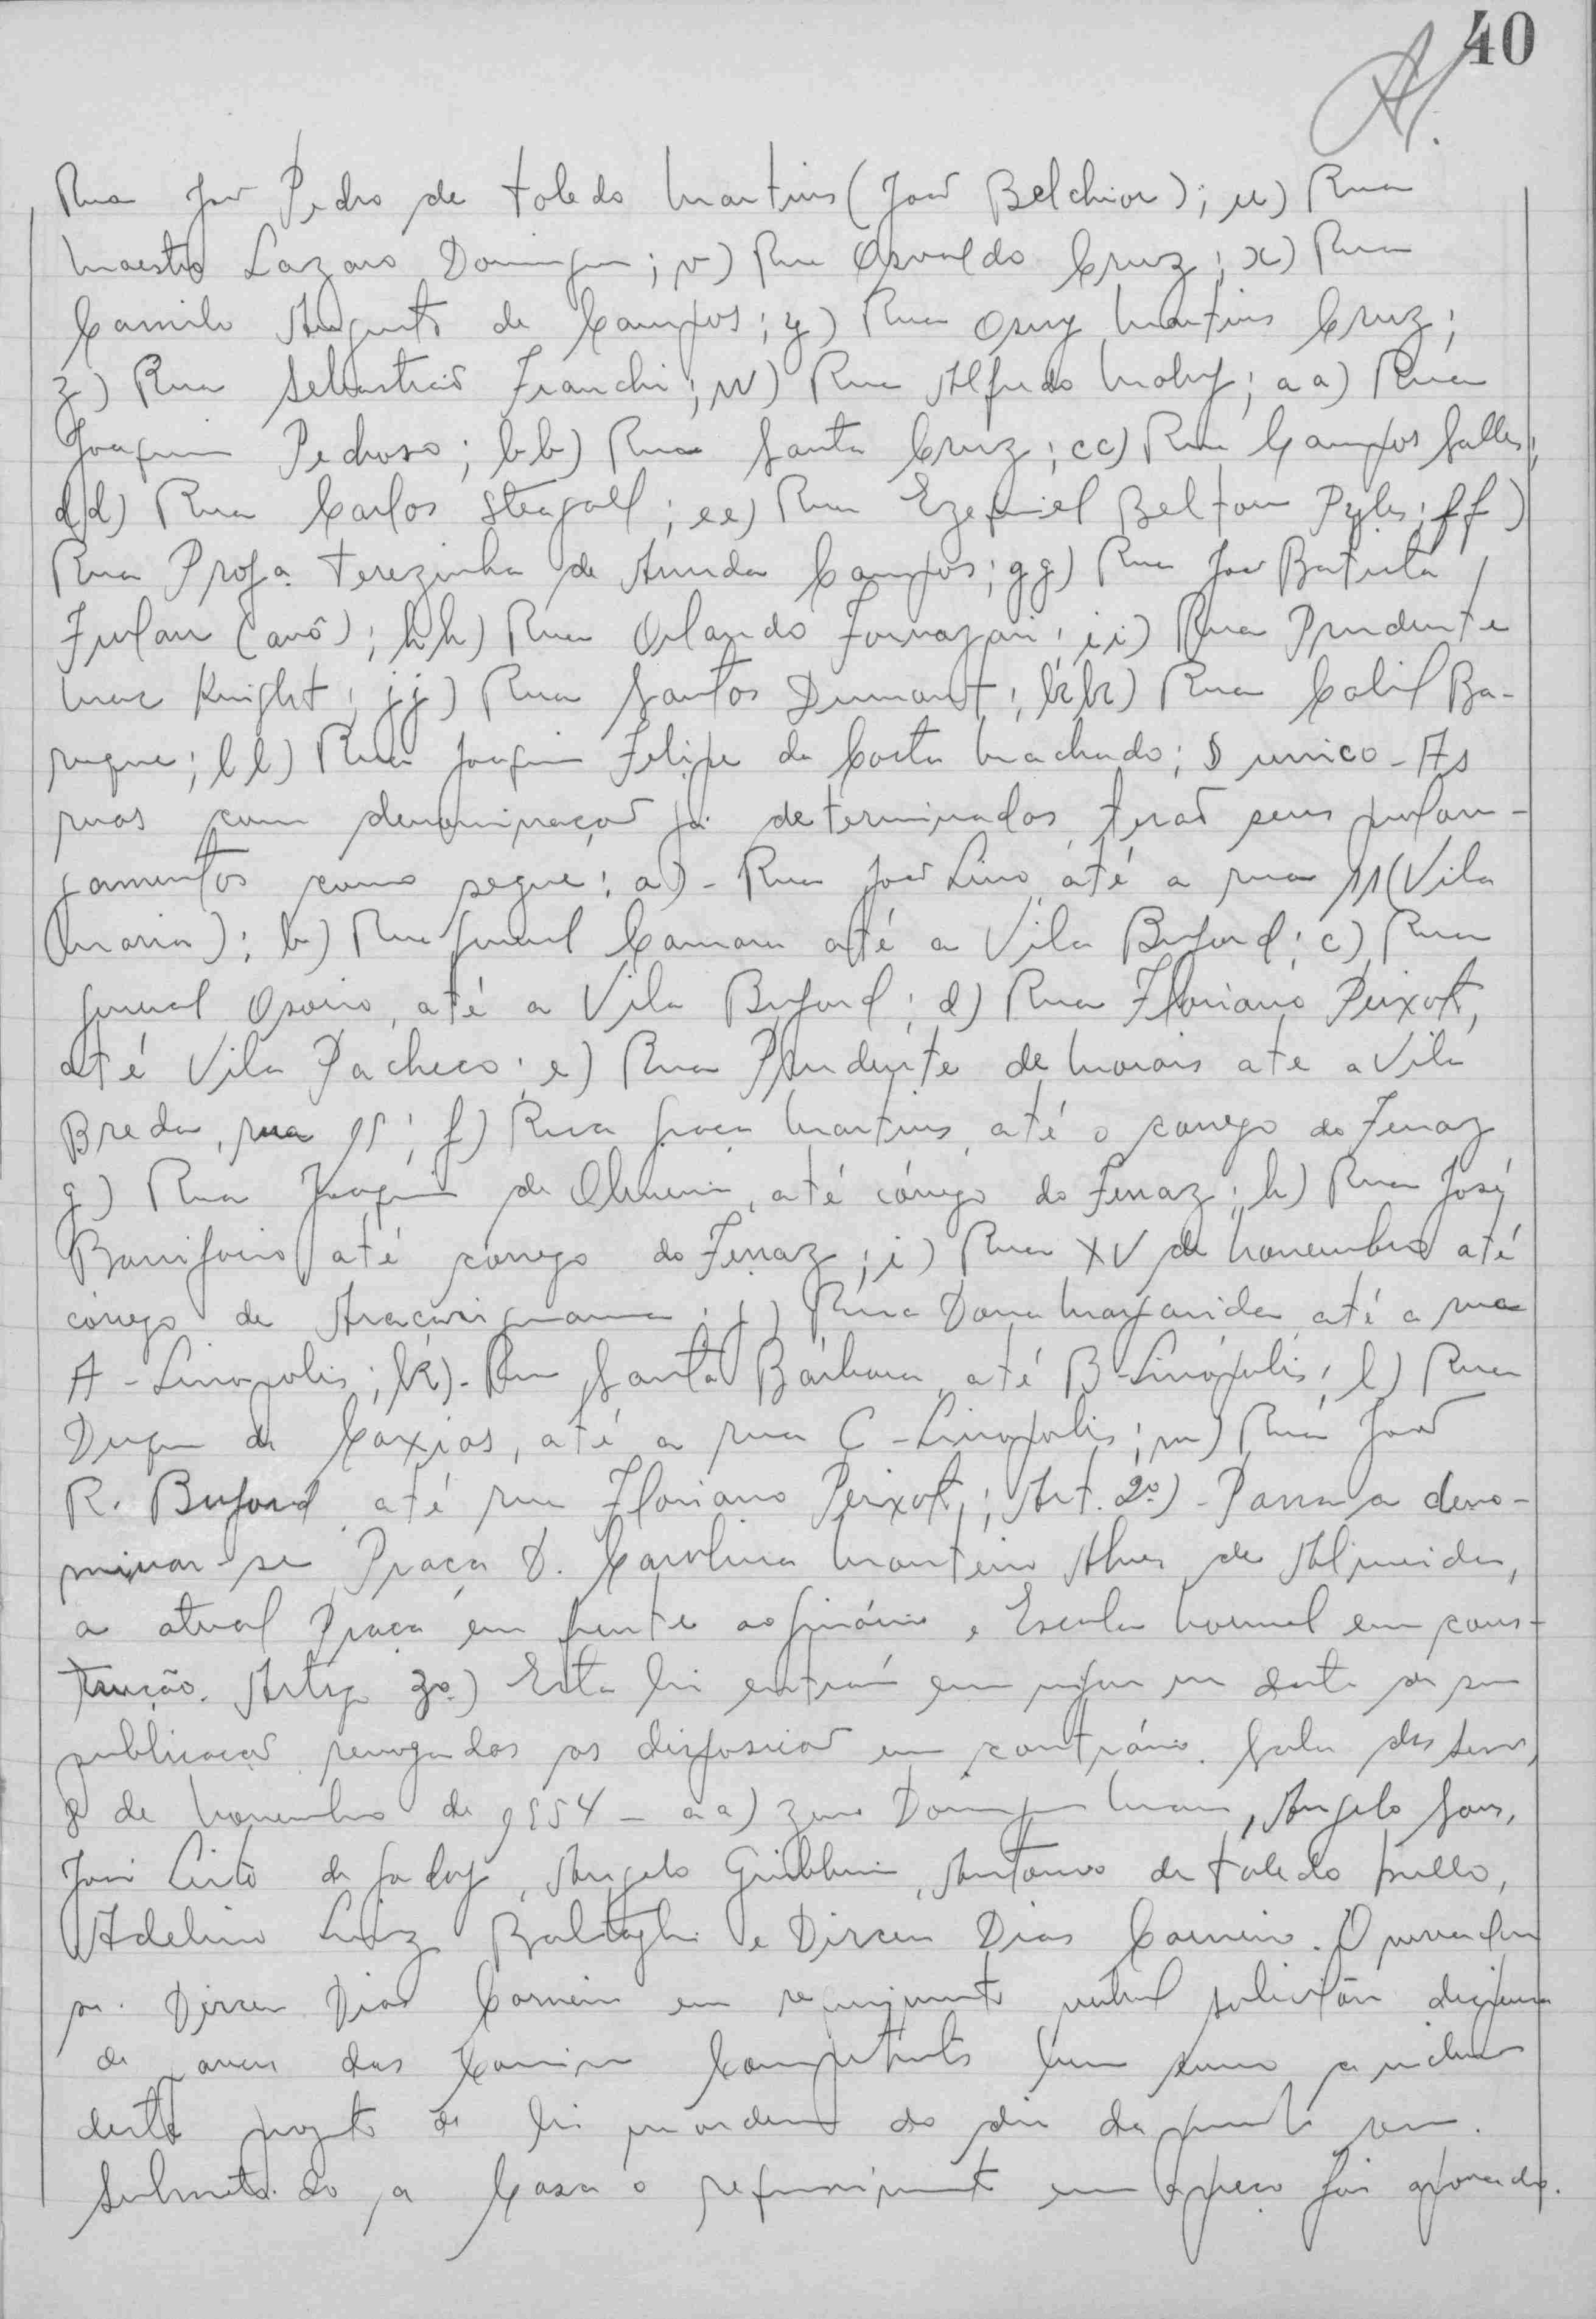 40
Rua João Pedro de Toledo Martins (João Belchior); u) Rua
Maestro Lazaro Domingues; v) Rua Osvaldo Cruz; x) Rua
Camilo Augusto de Campos; y) Rua Osny Martins Cruz;
z) Rua Sebastião Franchi; w) Rua Alfredo Maluf; aa) Rua
Joaquim Pedroso; bb) Rua Santa Cruz; cc) Rua Campos Salles;
dd) Rua Carlos Steagall; ee) Rua Ezequiel Belton Pyles; ff)
Rua Profa. Terezinha de Arruda Campos; gg) Rua João Batista
Furlan (avô); hh) Rua Orlando Fornazari; ii) Rua Prudente
Mac Knight; jj) Rua Santos Dumont; kk) Rua Calil Ba-
ruque; ll) Rua Joaquim Felipe da Costa Machado; § unico - As
ruas com denominação já determinadas, terão seus prolon-
gamentos como segue: a) - Rua João Lino, até a rua 11 (Vila
Maria); b) Rua General Camara até a Vila Buford; c) Rua
General Osorio, até a Vila Buford; d) Rua Floriano Peixoto,
até Vila Pacheco; e) Rua Prudente de Morais até a Vila
Breda, rua 15; f) Rua Graça Martins, até o corrego do Ferraz
g) Rua Joaquim de Oliveira, até córrego do Ferraz; h) Rua José
Bonifacio até corrego do Ferraz; i) Rua XV de Novembro até
córrego de Araçariguama; j) Rua Dona Margarida até a rua
A - Linopolis; k) - Rua Santa Bárbara, até B - Linópolis; l) Rua
Duque de Caxias, até a rua C - Linopolis; m) Rua João
R. Buford, até rua Floriano Peixoto; Art. 2º) - Passa a deno-
minar-se Praça D. Carolina Monteiro Alves de Almeida,
a atual Praça em frente ao ginásio e Escola Normal em cons-
trução. Artigo 3º) Esta lei entrará em vigor na data de sua
publicação revogadas as disposição em contrário. Sala das Sess,
8 de Novembro de 1954 - aa) Zeno Domingues Maia, Angelo Sans,
José Cirto de Godoy, Angelo Giubbini, Antonio de Toledo Mello,
Adelino Luiz Baltaghi e Dirceu Dias Carneiro. O vereador
sr. Dirceu Dias Carneiro em requerimento verbal solicitou dispensa
de parecer das Comissões Competentes bem como a inclusão
deste projeto de lei na ordem do dia da presente sessão.
Submetido a Casa o requerimento em apreço foi aprovado.